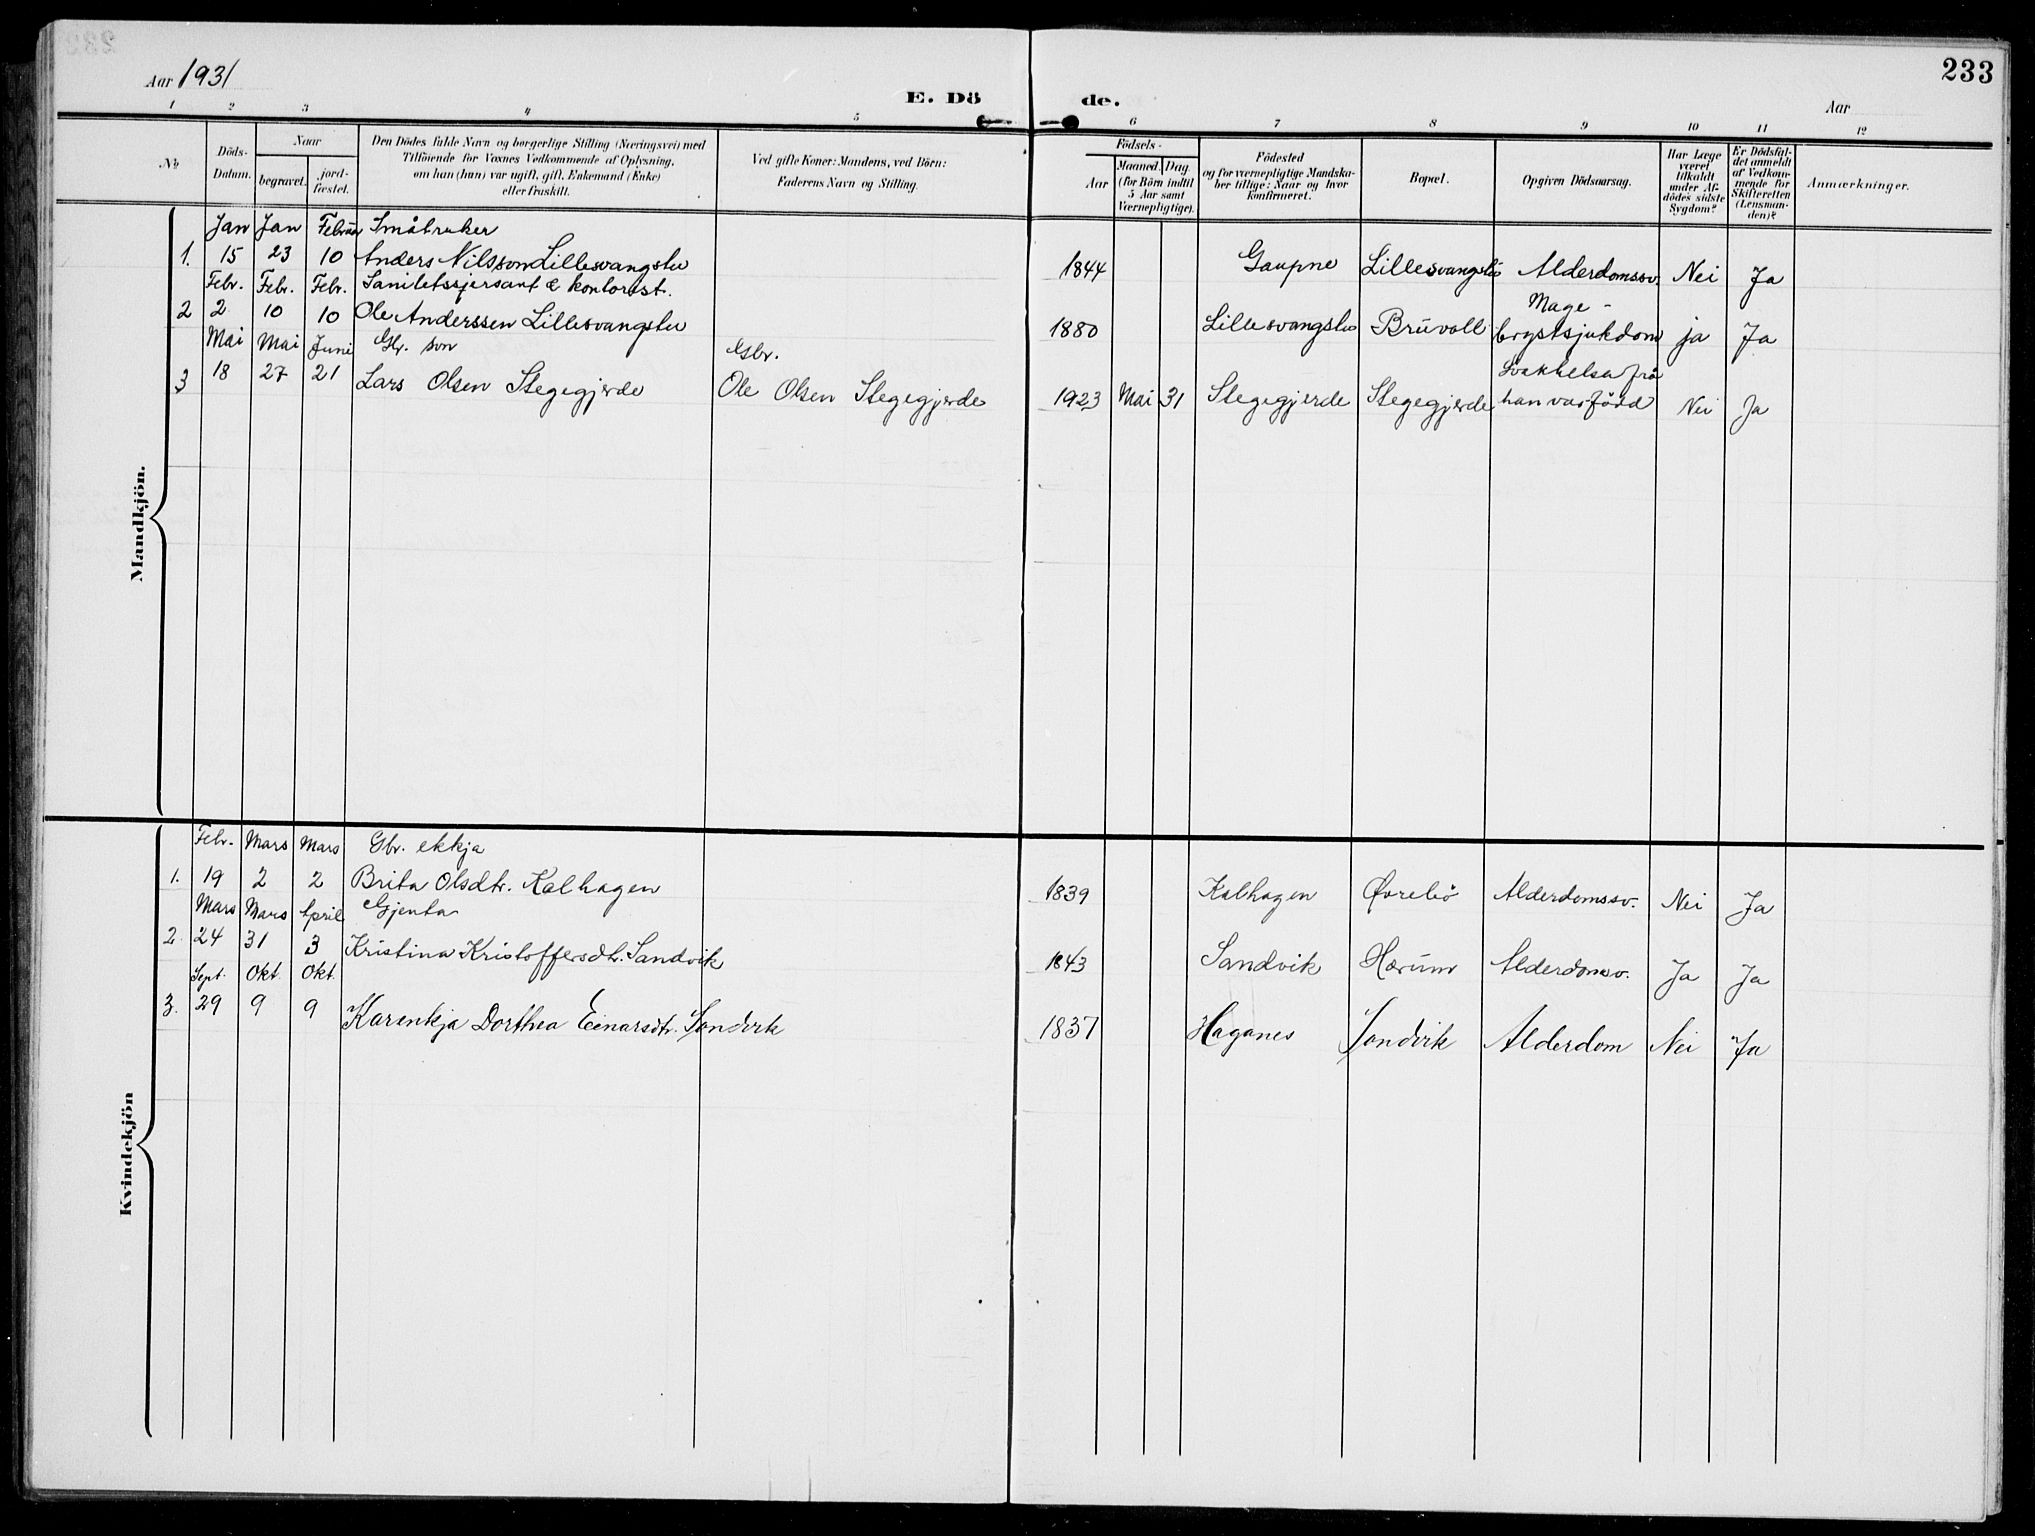 233
Aar 1931
E. Dö de.
Aar
1 2 3 4 5 6 7 8 9 10 11 12
№
Döds-
Datum.
Naar
begravet.
jord-
fæstet.
Den Dödes fulde Navn og borgerlige Stilling (Næringsvei) med
Tilföiende for Voxnes Vedkommende af Oplysning,
om han (hun) var ugift, gift, Enkemand (Enke)
eller fraskilt.
Ved gifte Koner: Mandens, ved Börn:
Faderens Navn og Stilling.
Födsels-
Aar
Maaned. Dag.
(for Börn indtil
5 Aar samt
Værnepligtige).
Födested
og for værnepligtige Mandska-
ber tillige: Naar og hvor
konfirmeret.
Bopæl.
Opgiven Dödsaarsag.
Har Læge
været
tilkaldt
under Af-
dödes sidste
Sygdom?
Er Dödsfal-
det anmeldt
af Vedkom-
mende for
Skifteretten
(Lensman-
den)?
Anmærkninger.
Mandkjön.
Jan Jan Februar Småbruker
1. 15 23 10 Anders Nilsson Lillesvangstu 1844 Gaupne Lillesvangstu Alderdomssv. Nei Ja
Febr. Febr. Febr. Sanitetssjersant & kontorist. Mage-
2 2 10 10 Ole Anderssen Lillesvangstu 1880 Lillesvangstu Bruvoll brystsjukdom ja Ja
Mai Mai Juni Gbr. son Gbr. Svakhelsa frå
3 18 27 21 Lars Olsen Stegegjerde Ole Olsen Stegegjerde 1923 Mai 31 Stegegjerde Stegegjerde han var fødd Nei Ja
Kvindekjön
Febr. Mars Mars Gbr. ekkja
1. 19 2 2 Brita Olsdtr. Kalhagen 1839 Kalhagen Øvrebø Alderdomssv. Nei Ja
Mars Mars April Gjenta
2. 24 31 3 Kristina Kristoffersdtr. Sandvik 1843 Sandvik Hærum Alderdomsv. Ja Ja
Sept. Okt. Okt.
3. 29 9 9 Karenkja Dorthea Einarsdtr. Sandvik 1837 Haganes Sandvik Alderdom Nei Ja